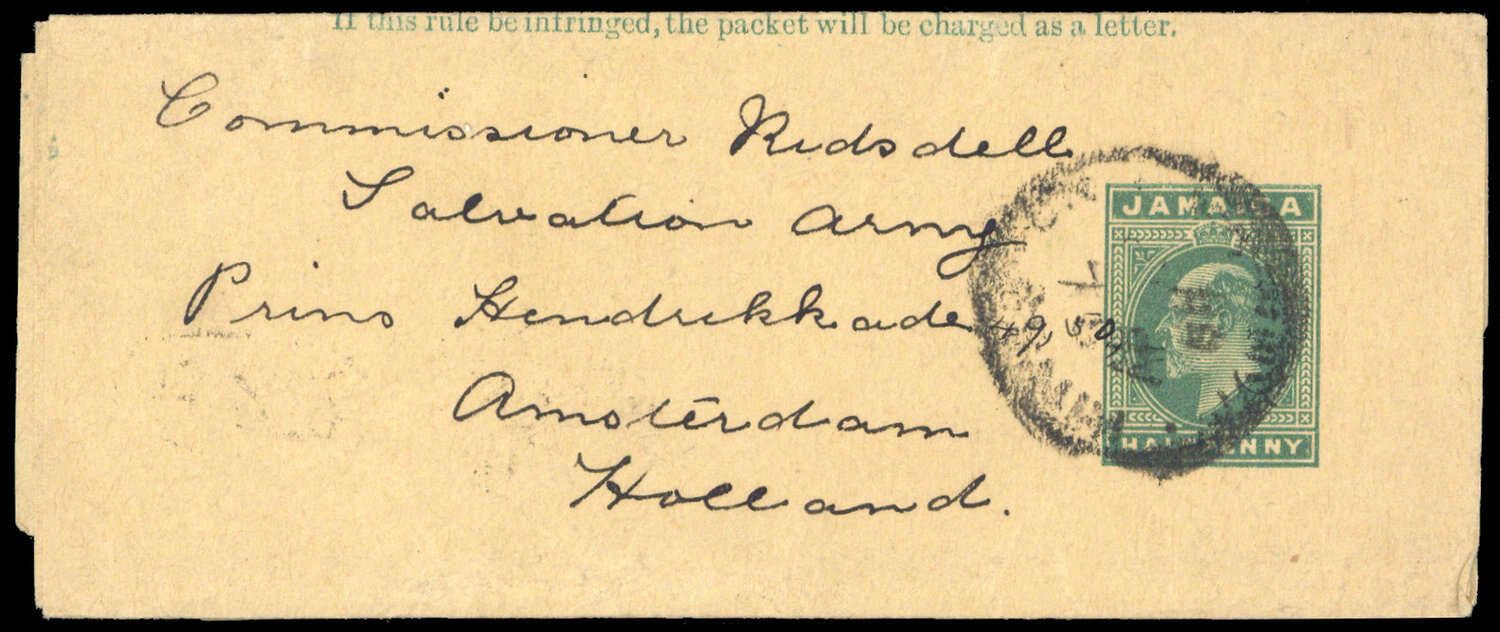 If this rule be infringed, the packet will be charged as a letter.
Commissioner Ridsdell
Salvation Army
Prins Hendrikkade 49, 50,
Amsterdam
Holland.
JAMAICA
HALFPENNY